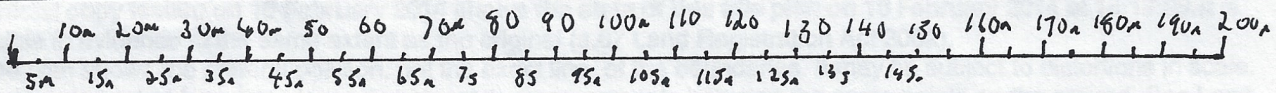 10m 20m 30m 40m 50 60 70m 80 90 100m 110 120 130 140 150 160m 170m 180m 190m 200m
5m 15m 25m 35m 45m 55m 65m 75 85 95m 105m 115m 125m 135 145m